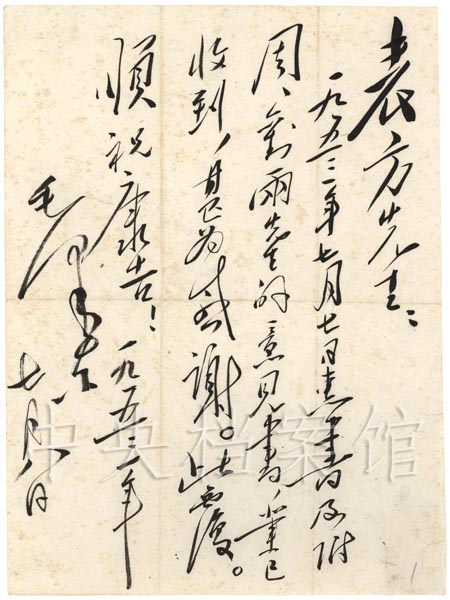 袁方先生：
一九五二年七月七日惠书及附
周、刘两先生的意见书，业已
收到，甚为感谢。此复。
顺祝康吉！
毛泽东
一九五二年
七月八日
中央档案馆